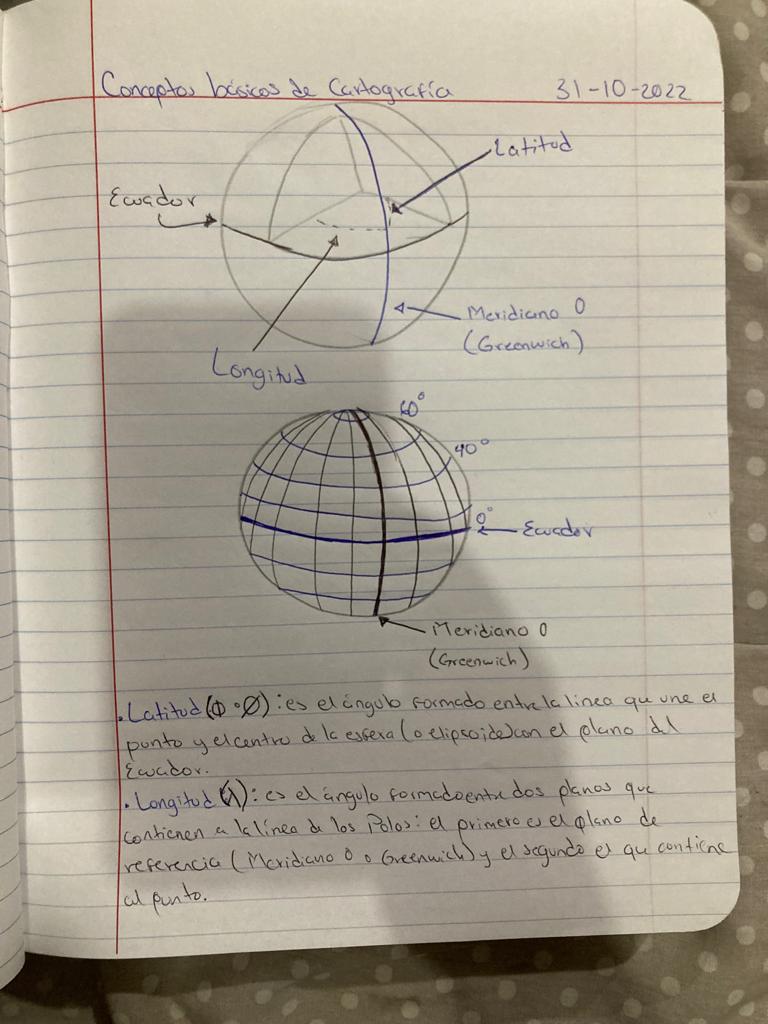 Conceptos básicos de Cartografía 31-10-2022
Latitud
Ecuador
Meridiano 0
(Greenwich)
Longitud
60°
40°
0°
Ecuador
Meridiano 0
(Greenwich)
• Latitud (Φ o Ø): es el ángulo formado entre la línea que une el
punto y el centro de la esfera (o elipsoide) con el plano del
Ecuador.
• Longitud (λ): es el ángulo formado entre dos planos que
contienen a la línea de los Polos: el primero es el plano de
referencia (Meridiano 0 o Greenwich) y el segundo es que contiene
al punto.